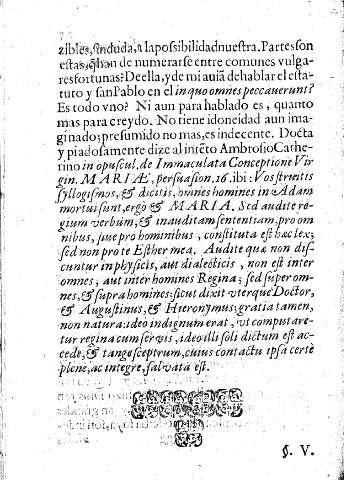 zibles, sin duda, a la possibilidad nuestra. Partes son
estas, q̃ han de numerarse entre comunes vulga-
res fortunas? De ella, y de mi auiã de hablar el esta-
tuto y san Pablo en el in quo omnes peccauerunt?
Es todo vno? Ni aun para hablado es, quanto
mas para creydo. No tiene idoneidad aun ima
ginado; presumido no mas, es indecente. Docta
y piadosamente dize al intẽto Ambrosio Cathe-
rino in opuscul. de Immaculata Conceptione Vir
gin. MARIÆ, persuasion. 16. ibi: Vos struitis
syllogismos, & dicitis, omnes homines in Adam
mortui sunt, ergò & MARIA. Sed audite re-
gium verbum, & inauditam sententiam, pro om
nibus, siue pro hominibus, constituta est hac lex;
sed non pro te Esther mea. Audite quæ non dis-
cuntur in physicis, aut dialecticis, non est inter
omnes, aut intèr homines Regina; sed super om-
nes, & supra homines: sicut dixit vterque Doctor,
& Augustinus, & Hieronymus: gratia tamen,
non natura: ideo indignum erat, vt computare-
tur regina cum servis, ideo illi soli dictum est ac-
cede, & tange sceptrum, cuius contactu ipsa certè
plene, ac integre, salvata est.
§. V.